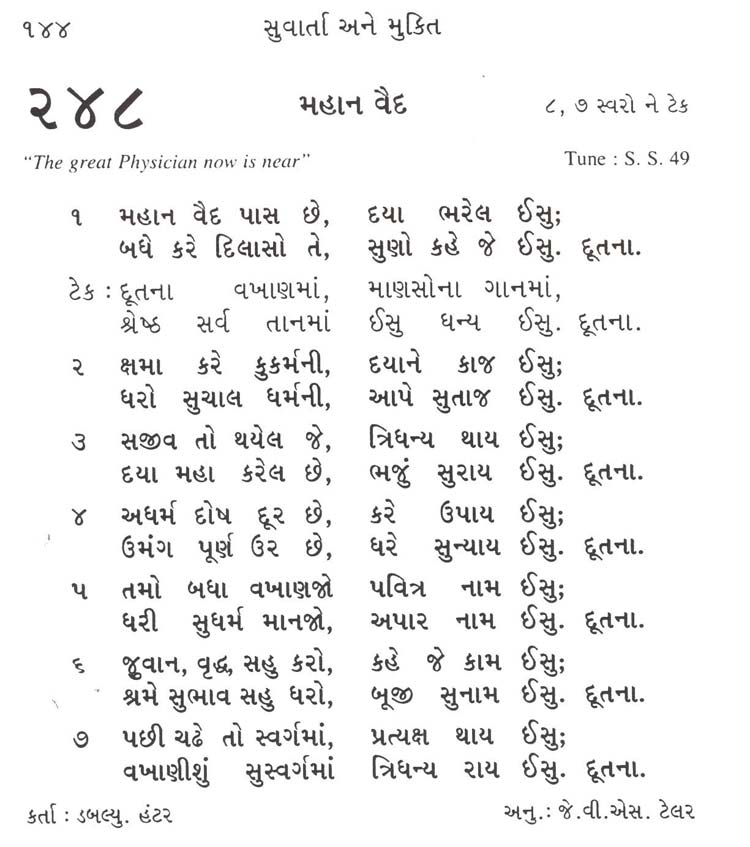 ૧૪૪ સુવાર્તા અને મુક્તિ
૨૪૮ મહાન વૈદ ૮, ૭ સ્વરો ને ટેક
“The great Physician now is near” Tune : S. S. 49
૧ મહાન વૈદ પાસ છે, દયા ભરેલ ઈસુ;
બધે કરે દિલાસો તે, સુણો કહે જે ઈસુ. દૂતના.
ટેક : દૂતના વખાણમાં, માણસોના ગાનમાં,
શ્રેષ્ઠ સર્વ તાનમાં ઈસુ ધન્ય ઈસુ. દૂતના.
૨ ક્ષમા કરે કુકર્મની, દયાને કાજ ઈસુ;
ધરો સુચાલ ધર્મની, આપે સુતાજ ઈસુ. દૂતના.
૩ સજીવ તો થયેલ જે, ત્રિધન્ય થાય ઈસુ;
દયા મહા કરેલ છે, ભજું સુરાય ઈસુ. દૂતના.
૪ અધર્મ દોષ દૂર છે, કરે ઉપાય ઈસુ;
ઉમંગ પૂર્ણ ઉર છે, ધરે સુન્યાય ઈસુ. દૂતના.
૫ તમો બધા વખાણજો પવિત્ર નામ ઈસુ;
ધરી સુધર્મ માનજો, અપાર નામ ઈસુ. દૂતના.
૬ જુવાન, વૃદ્ધ, સહુ કરો, કહે જે કામ ઈસુ;
શ્રમે સુભાવ સહુ ધરો, બૂજી સુનામ ઈસુ. દૂતના.
૭ પછી ચઢે તો સ્વર્ગમાં, પ્રત્યક્ષ થાય ઈસુ;
વખાણીશું સુસ્વર્ગમાં ત્રિધન્ય રાય ઈસુ. દૂતના.
કર્તા : ડબલ્યુ. હંટર અનુ.: જે.વી.એસ. ટેલર